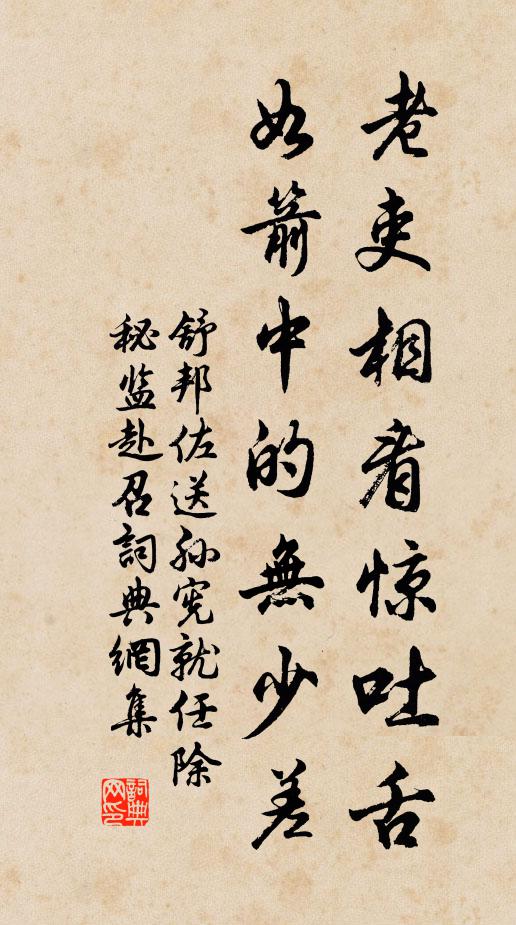 老吏相看惊吐舌
如箭中的無少差
舒邦佐送孙宪就任除
秘监赴召詞典網集
詞典
网印